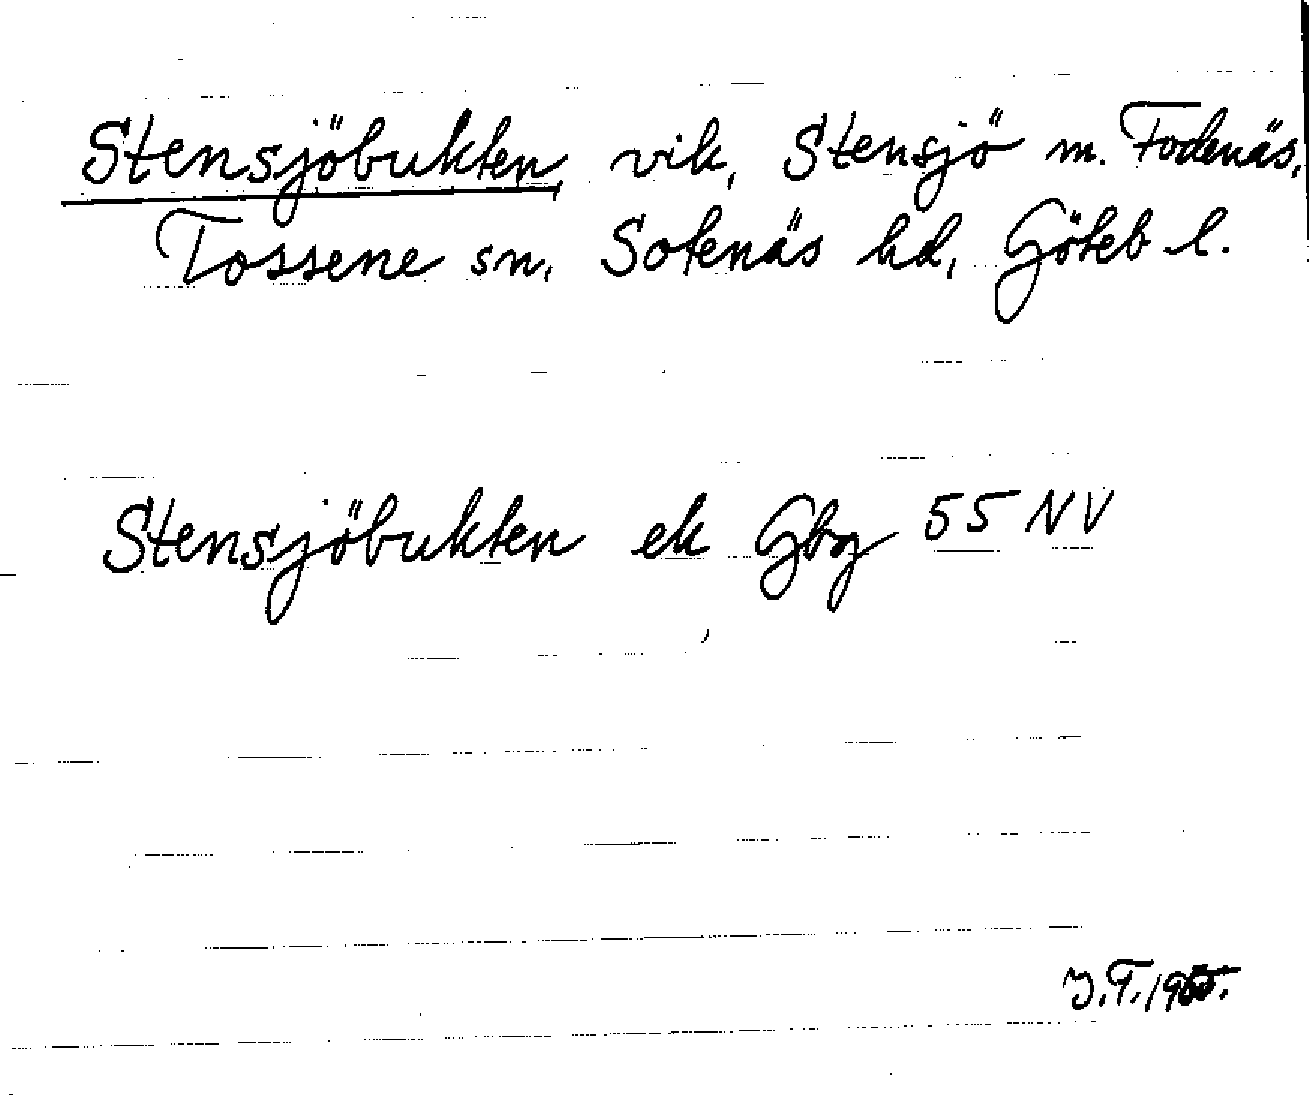 Stensjöbukten, vik, Stensjö m. Fodenäs,
Tossene sn, Sotenäs hd, Göteb l.
Stensjöbukten ek Gbg 55 NV